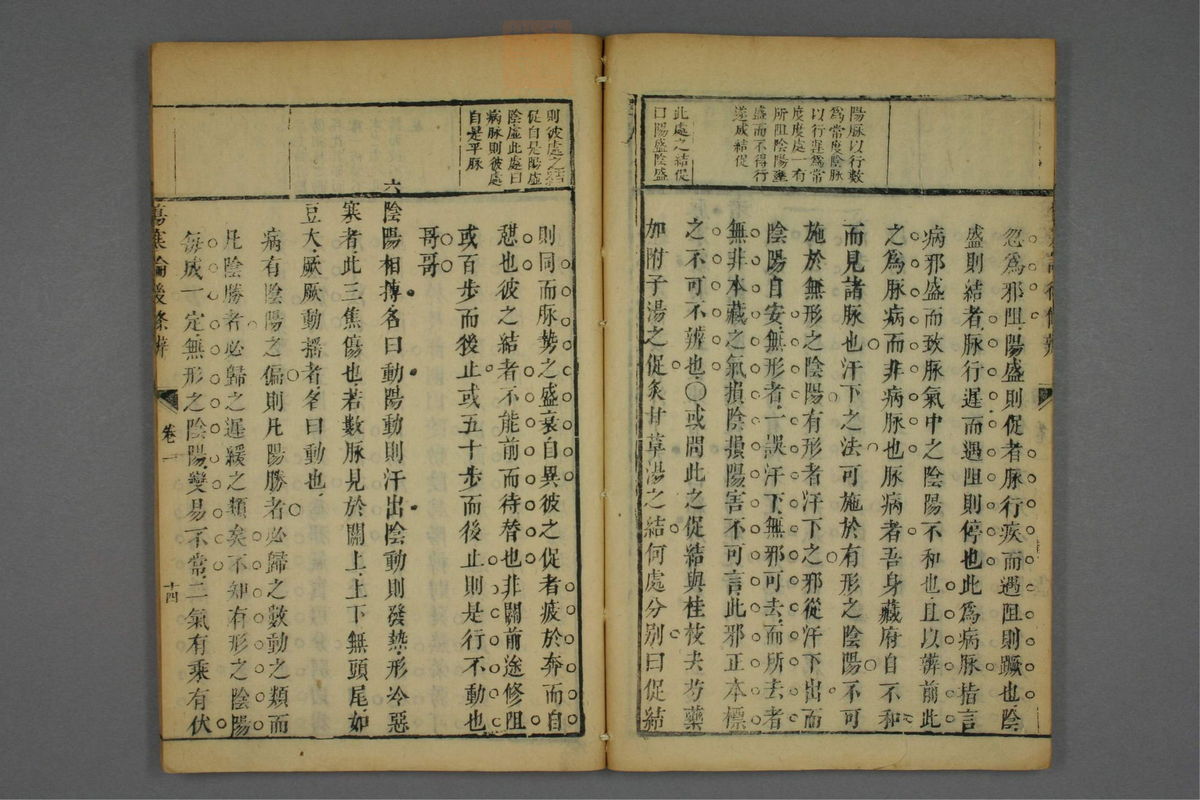 陽脉以行數
為常度陰脉
以行遲為常
度度處一有
所阻陰陽雖
盛而不得行
遂成結促
此處之結促
曰陽盛陰盛
忽為邪阻陽盛則促者脉行疾而遇阻則蹶也陰
盛則結者脉行遲而遇阻則停也此為病脉指言
病邪盛而致脉氣中之陰陽不和也且以辨前此
之為脉病而非病脉也脉病者吾身藏府自不和
而見諸脉也汗下之法可施於有形之陰陽不可
施於無形之陰陽有形者汗下之邪從汗下出而
陰陽自安無形者一誤汗下無邪可去而所去者
無非本藏之氣損陰損陽害不可言此邪正本標
之不可不辨也〇或問此之促結與桂枝去芍藥
加附子湯之促炙甘草湯之結何處分別曰促結
則彼處之結
促自是陽虛
陰虛此處曰
病脉則彼處
自是平脉
則同而脉勢之盛衰自異彼之促者疲於奔而自
憩也彼之結者不能前而待替也非關前途修阻
或百步而後止或五十步而後止則是行不動也
哥哥
六陰陽相摶名曰動陽動則汗出陰動則發熱形冷惡
寒者此三焦傷也若數脉見於關上上下無頭尾如
豆大厥厥動搖者名曰動也
病有陰陽之偏則凡陽勝者必歸之數動之類而
凡陰勝者必歸之遲緩之類矣不知有形之陰陽
每成一定無形之陰陽變易不常二氣有乘有伏
傷寒論後條辨
卷一
十四